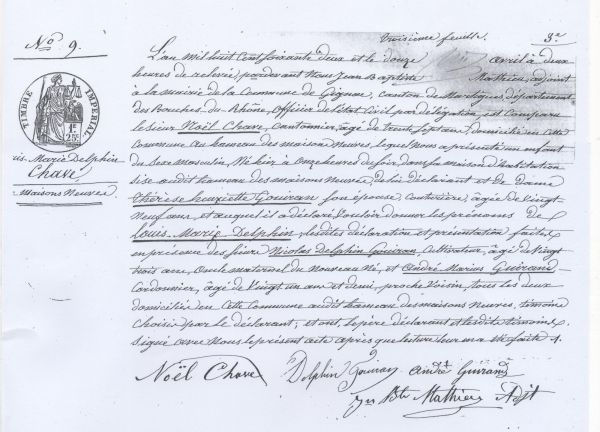 troisième feuille. 3.e
No 9.
L'an mil huit cent soixante deux et le douze avril à deux
heures de relevée, par devant Nous Jean Baptiste Mathieu, adjoint
à la mairie de la Commune de Gignac, Canton de Martigues, département
des Bouches du Rhône, Officier de l'état Civil par délégation, est comparu
le sieur Noël Chave, cantonnier, âgé de trente sept ans, domicilié en cette
Commune au hameau des maisons neuves, lequel Nous a présenté un enfant
du sexe masculin, Né hier à onze heures du soir, dans sa maison d'habitation
sise audit hameau des maisons neuves, de lui déclarant et de dame
thérèse henriette Gouiran son épouse, couturière, âgée de vingt-
Neuf ans, et auquel il a déclaré Vouloir donner les prénoms de
Louis Marie Delphin; lesdites déclaration et présentation faites
en présence des sieurs Nicolas delphin Gouiran, Cultivateur, âgé de vingt
trois ans, oncle maternel du Nouveau Né, et André Marius Guirand
Cordonnier, âgé de vingt un ans et demi, proche Voisin, tous les deux
domiciliés en Cette Commune audit hameau des maisons Neuves, témoins
choisis par le déclarant; et ont, le père déclarant et lesdits témoins
signé avec Nous le présent acte après que lecture leur en a été faite.
TIMBRE IMPÉRIAL
1F
25c
Louis Marie Delphin
Chave
Maisons Neuves
Noël Chave Delphin Gouiran andré Guirand
Jn Bte Mathieu Adjt